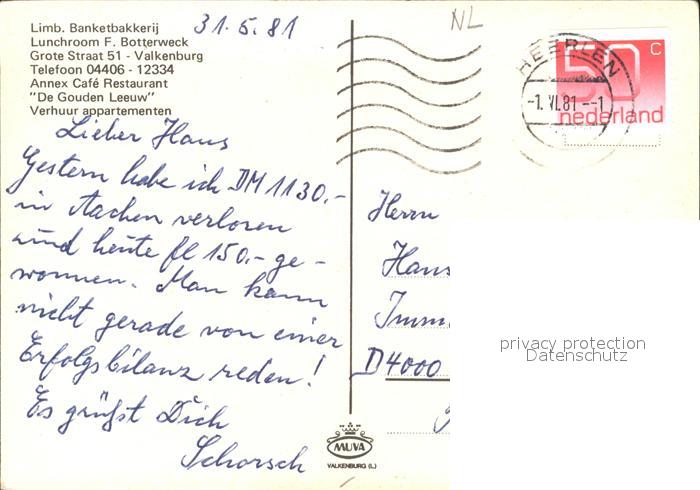 Limb. Banketbakkerij
Lunchroom F. Botterweck
Grote Straat 51 - Valkenburg
Telefoon 04406 - 12334
Annex Café Restaurant
"De Gouden Leeuw"
Verhuur appartementen
31.5.81
NL
HEERLEN
-1.VI.81--1
50 c
nederland
Lieber Hans
Gestern habe ich DM 1130.-
in Aachen verloren
und heute fl 150.- ge-
wonnen. Man kann
nicht gerade von einer
Erfolgsbilanz reden!
Es grüßt Dich
Schorsch
Herrn
Hans
Imm
D4000
privacy protection
Datenschutz
MUVA
VALKENBURG (L.)